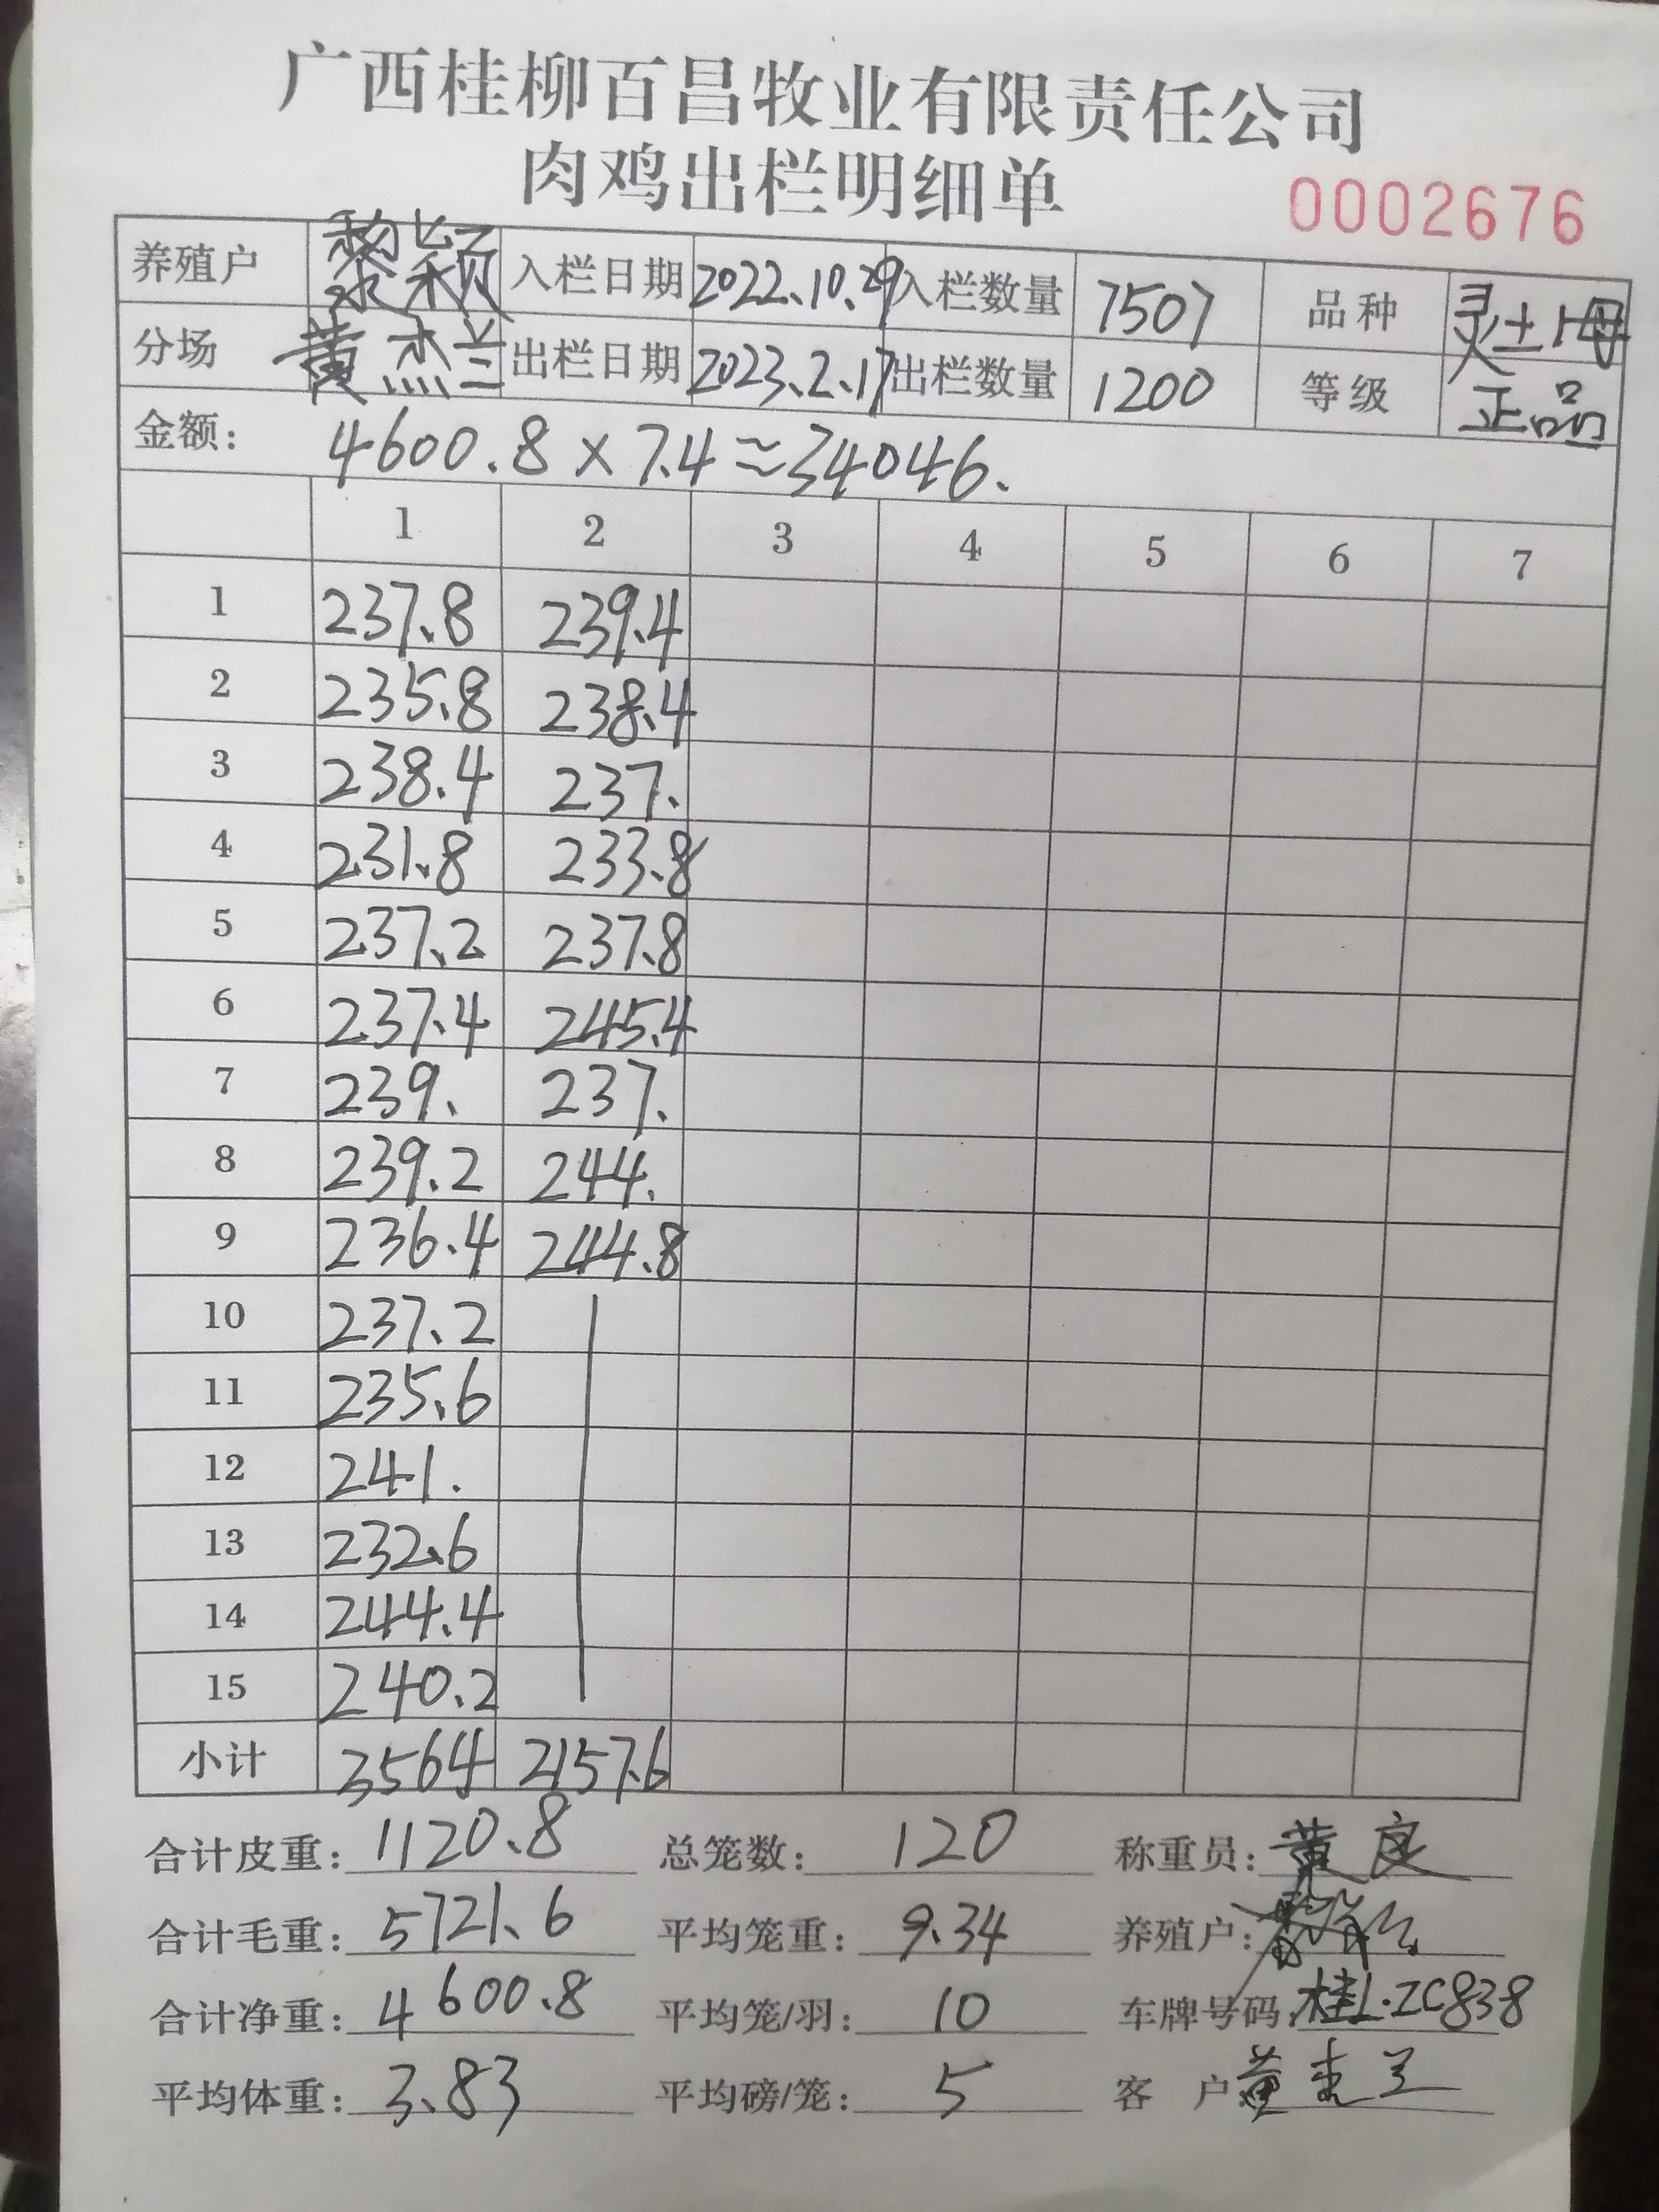 广西桂柳百昌牧业有限责任公司
肉鸡出栏明细单
0002676
养殖户 黎颖 入栏日期 2022.10.29 入栏数量 7507 品种 灵土1母
分场 黄杰兰 出栏日期 2023.2.17 出栏数量 1200 等级 正品
金额: 4600.8×7.4≈34046.
1 2 3 4 5 6 7
1 237.8 239.4
2 235.8 238.4
3 238.4 237.
4 231.8 233.8
5 237.2 237.8
6 237.4 245.4
7 239. 237.
8 239.2 244.
9 236.4 244.8
10 237.2
11 235.6
12 241.
13 232.6
14 244.4
15 240.2
小计 3564 2157.6
合计皮重: 1120.8 总笼数: 120 称重员: 黄
合计毛重: 5721.6 平均笼重: 9.34 养殖户:
合计净重: 4600.8 平均笼/羽: 10 车牌号码: 桂L·ZC838
平均体重: 3.83 平均磅/笼: 5 客 户 黄杰兰